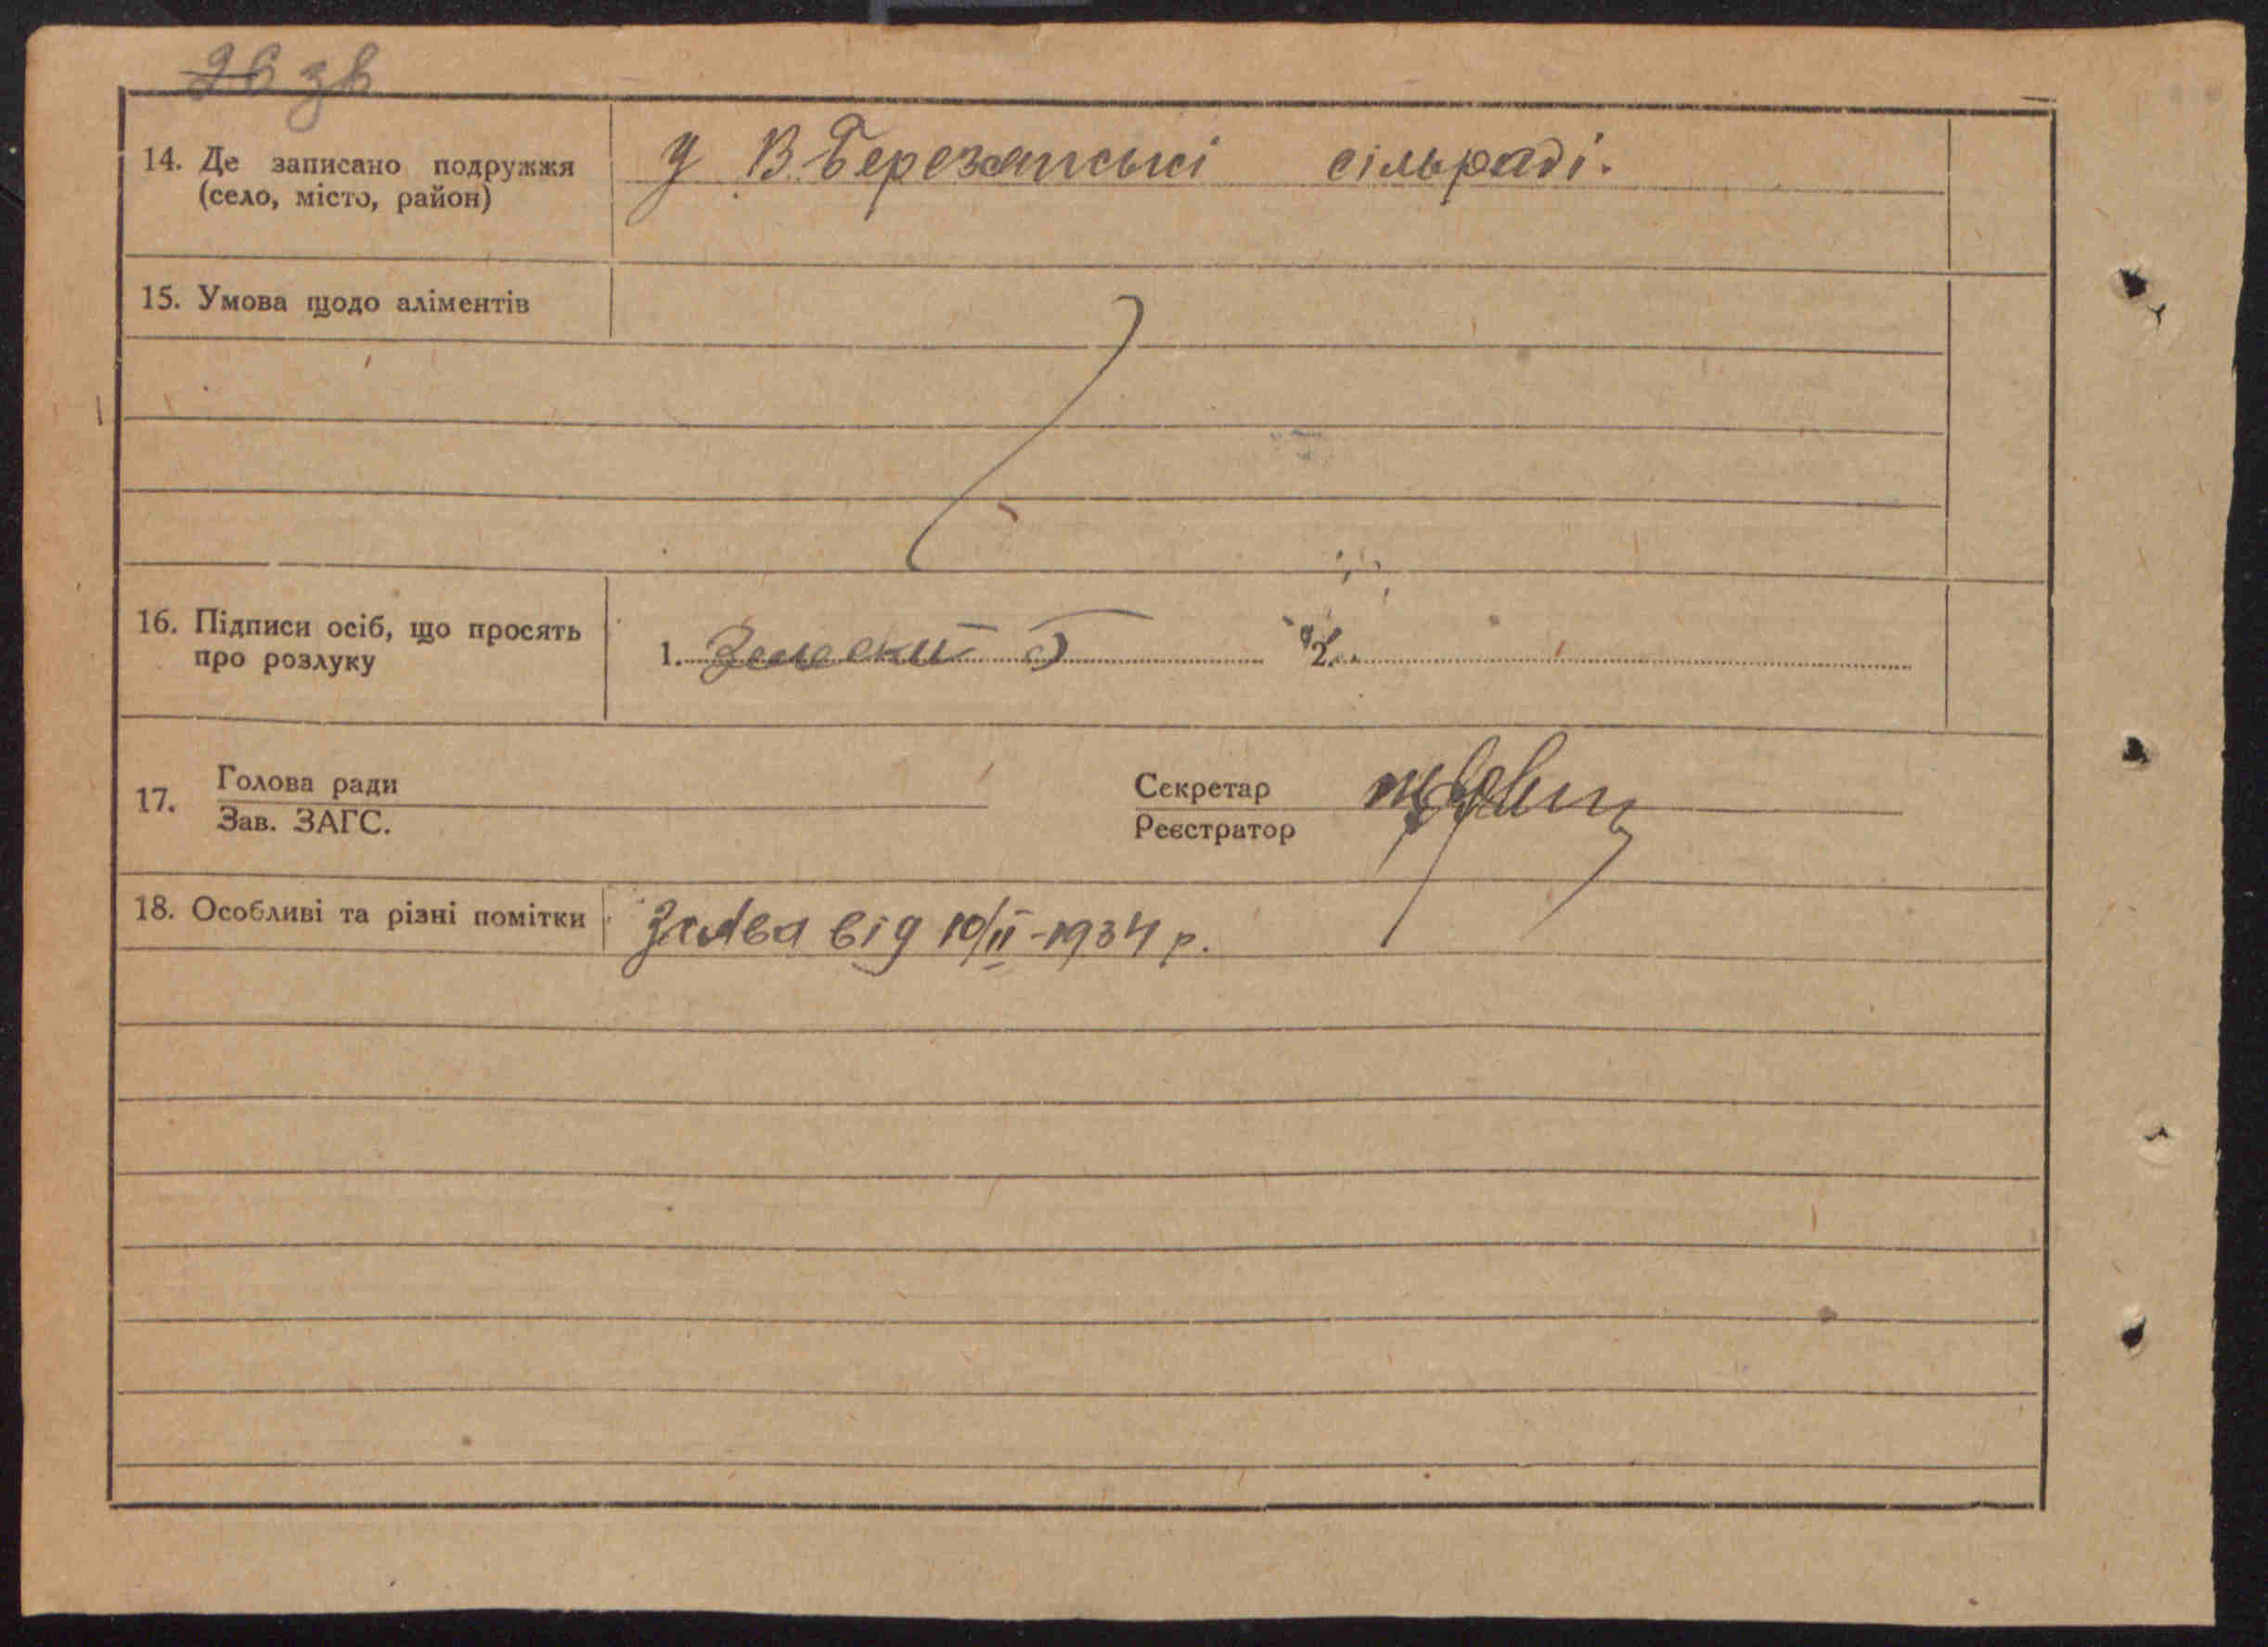 26 зв
14. Де записано подружжя
(село, місто, район)
У В.Березанські сільраді.
15. Умова щодо аліментів
16. Підписи осіб, що просять
про розлуку
1. 2.
17. Голова ради
Зав. ЗАГС.
Секретар
Реєстратор
18. Особливі та різні помітки
Заява від 10/II-1934 р.